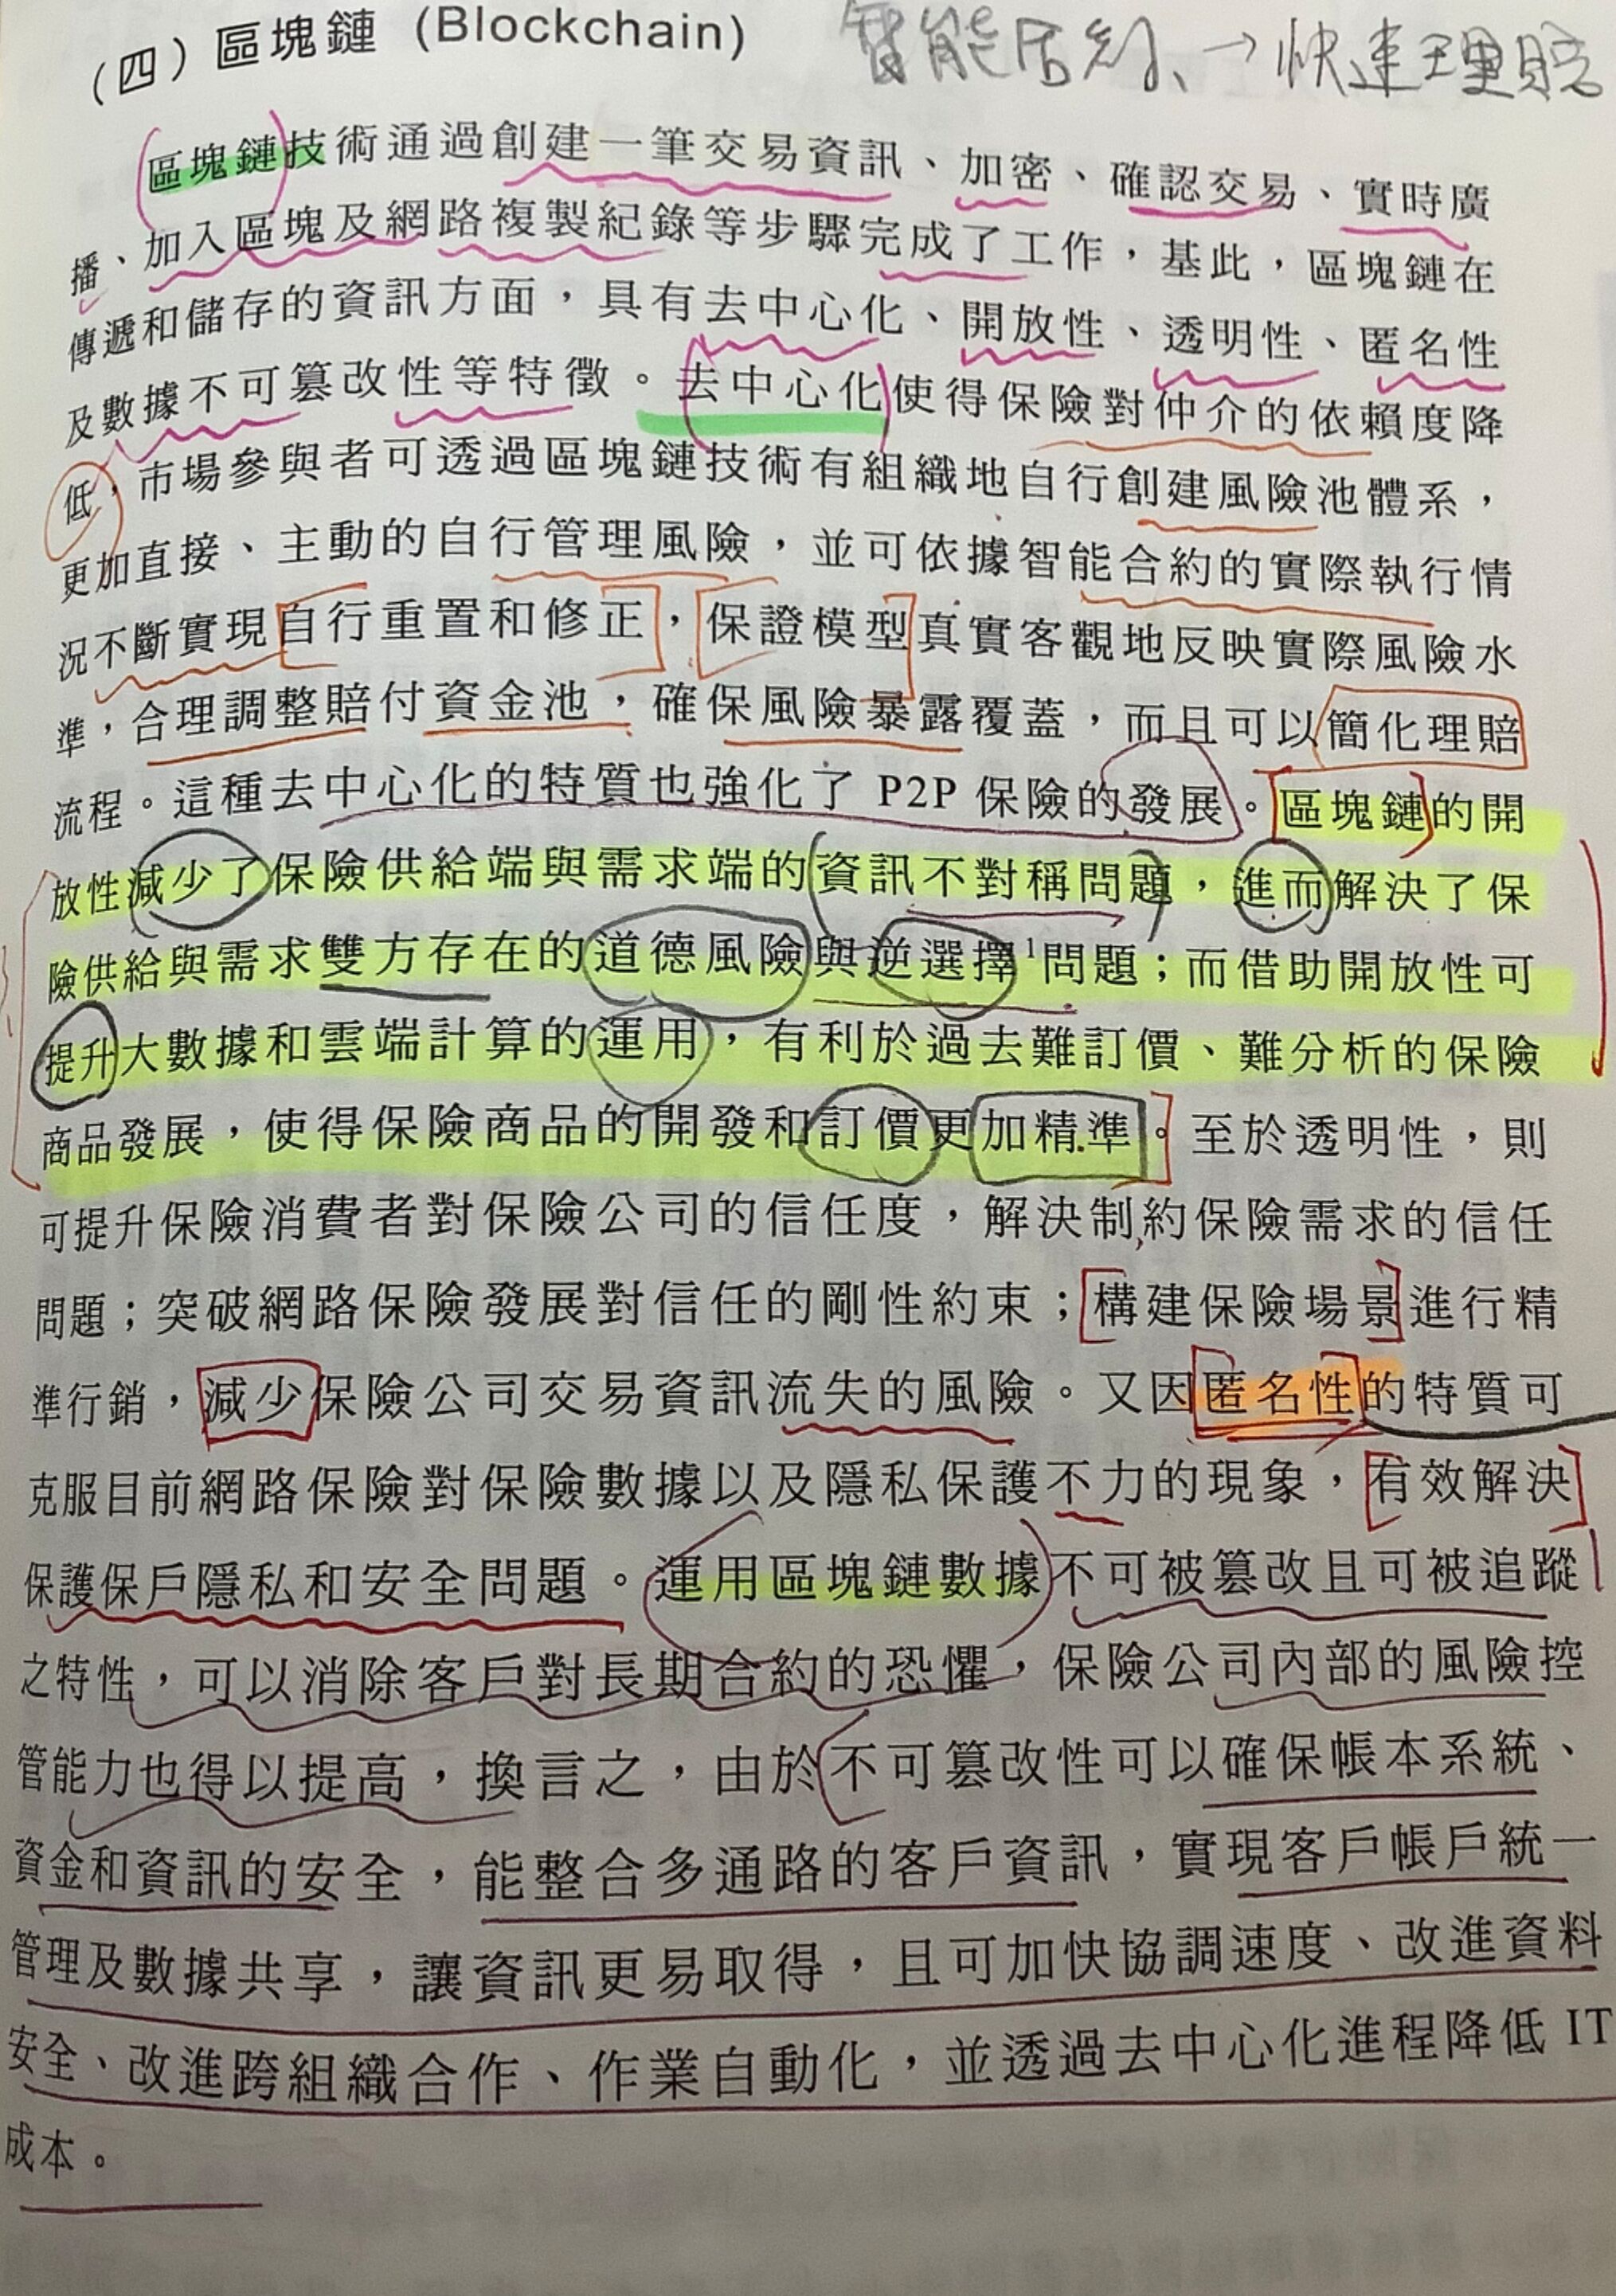 (四) 區塊鏈 (Blockchain)
智能合約、→快速理賠
區塊鏈技術通過創建一筆交易資訊、加密、確認交易、實時廣
播、加入區塊及網路複製紀錄等步驟完成了工作，基此，區塊鏈在
傳遞和儲存的資訊方面，具有去中心化、開放性、透明性、匿名性
及數據不可篡改性等特徵。去中心化使得保險對仲介的依賴度降
低，市場參與者可透過區塊鏈技術有組織地自行創建風險池體系，
更加直接、主動的自行管理風險，並可依據智能合約的實際執行情
況不斷實現自行重置和修正，保證模型真實客觀地反映實際風險水
準，合理調整賠付資金池，確保風險暴露覆蓋，而且可以簡化理賠
流程。這種去中心化的特質也強化了 P2P 保險的發展。區塊鏈的開
放性減少了保險供給端與需求端的資訊不對稱問題，進而解決了保
險供給與需求雙方存在的道德風險與逆選擇1問題；而借助開放性可
提升大數據和雲端計算的運用，有利於過去難訂價、難分析的保險
商品發展，使得保險商品的開發和訂價更加精準。至於透明性，則
可提升保險消費者對保險公司的信任度，解決制約保險需求的信任
問題；突破網路保險發展對信任的剛性約束；構建保險場景進行精
準行銷，減少保險公司交易資訊流失的風險。又因匿名性的特質可
克服目前網路保險對保險數據以及隱私保護不力的現象，有效解決
保護保戶隱私和安全問題。運用區塊鏈數據不可被篡改且可被追蹤
之特性，可以消除客戶對長期合約的恐懼，保險公司內部的風險控
管能力也得以提高，換言之，由於不可篡改性可以確保帳本系統、
資金和資訊的安全，能整合多通路的客戶資訊，實現客戶帳戶統一
管理及數據共享，讓資訊更易取得，且可加快協調速度、改進資料
安全、改進跨組織合作、作業自動化，並透過去中心化進程降低 IT
成本。